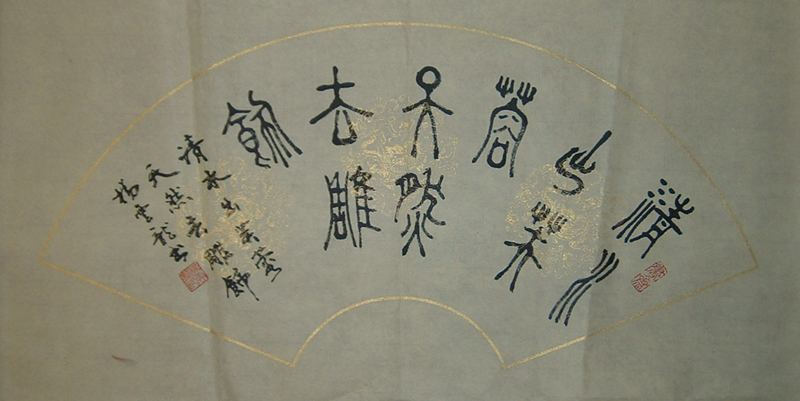 清水
出芙
蓉
天然
去雕
飾
清水出芙蓉
天然去雕飾
楊雲龍书